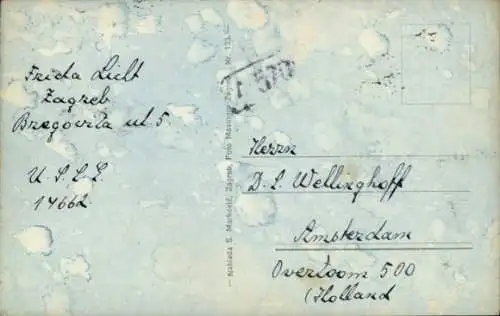 Frida Licht
Zagreb
Bregovita ul 5
U.S.L.E.
14662
Naklada S. Marković, Zagreb, Foto Mosinger, Nr. 133
570
Herrn
D. L. Wellinghoff
Amsterdam
Overtoom 500
(Holland